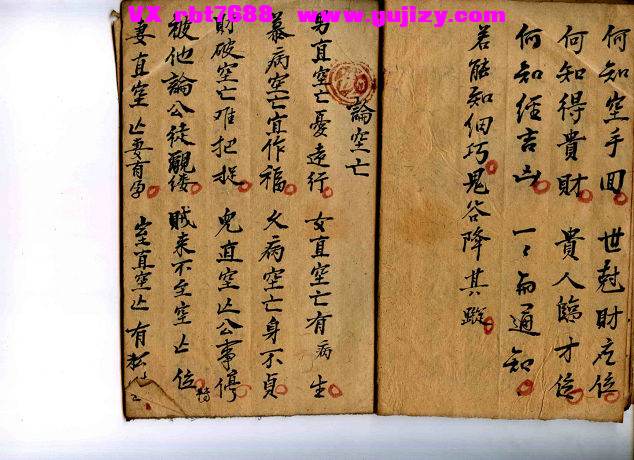 VX rbt7688 www.gujizy.com
何知空手回 世尅財爻位
何知得貴財 貴人臨才位
何知經吉凶 一〻俞通知
若能知個巧 鬼谷降其蹤
論空亡
男直空亡憂遠行 女直空亡有病生
暴病空亡宜作福 久病空亡身不貞
財破空亡难把捉 鬼直空亡公事停
被他論公徒 賊来不至空亡位
妻直空亡妻有孕 室直空亡有